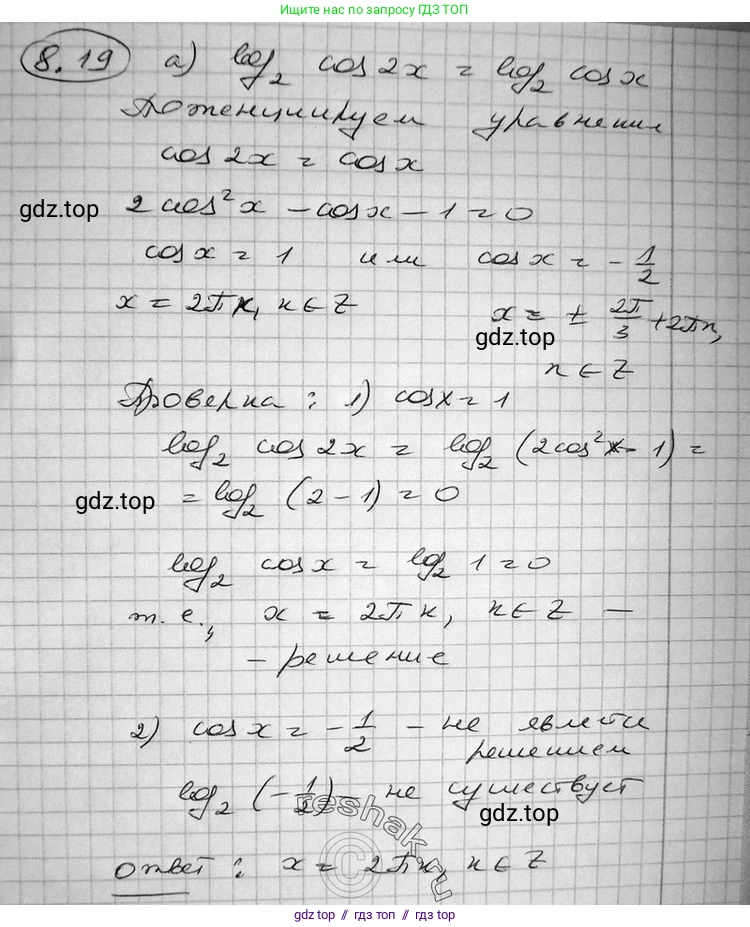 Ищите нас по запросу ГДЗ ТОП
8.19 а) log₂ cos 2x = log₂ cos x
Потенцируем уравнение
cos 2x = cos x
gdz.top 2 cos² x - cos x - 1 = 0
cos x = 1 или cos x = - 1/2
x = 2πк, к ∈ Z x = ± 2π/3 + 2πn,
gdz.top
n ∈ Z
Проверка : 1) cos x = 1
log₂ cos 2x = log₂ (2cos² x - 1) =
gdz.top = log₂ (2 - 1) = 0
log₂ cos x = log₂ 1 = 0
т. е., x = 2πк, к ∈ Z -
- решение
2) cos x = - 1/2 - не является
решением
log₂ (- 1/2) - не существует
gdz.top
reshak.ru
©
ответ : x = 2πк, к ∈ Z
gdz.top // гдз.топ // gdz.top // гдз.топ